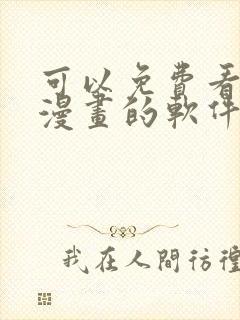 可以免費看
漫畫的軟件
我在人間彷徨